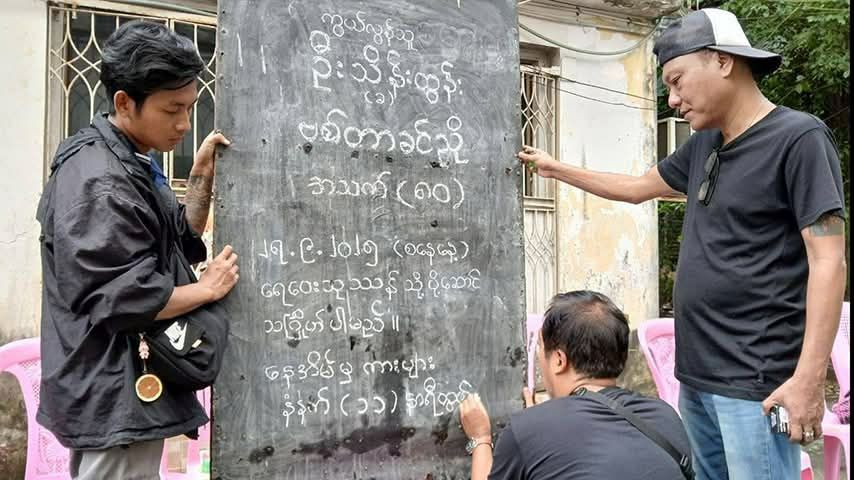 ကွယ်လွန်သူ
ဦးသိန်းထွန်း
(ခ)
ဗစ်တာခင်ညို
အသက် (၈၀)
၂၇.၉.၂၀၂၅ (စနေနေ့)
ရေဝေးသုဿာန် သို့ ပို့ဆောင်
သင်္ဂြိုဟ် ပါမည် ။
နေအိမ် မှ ကားများ
နံနက် (၁၁) နာရီထွက်